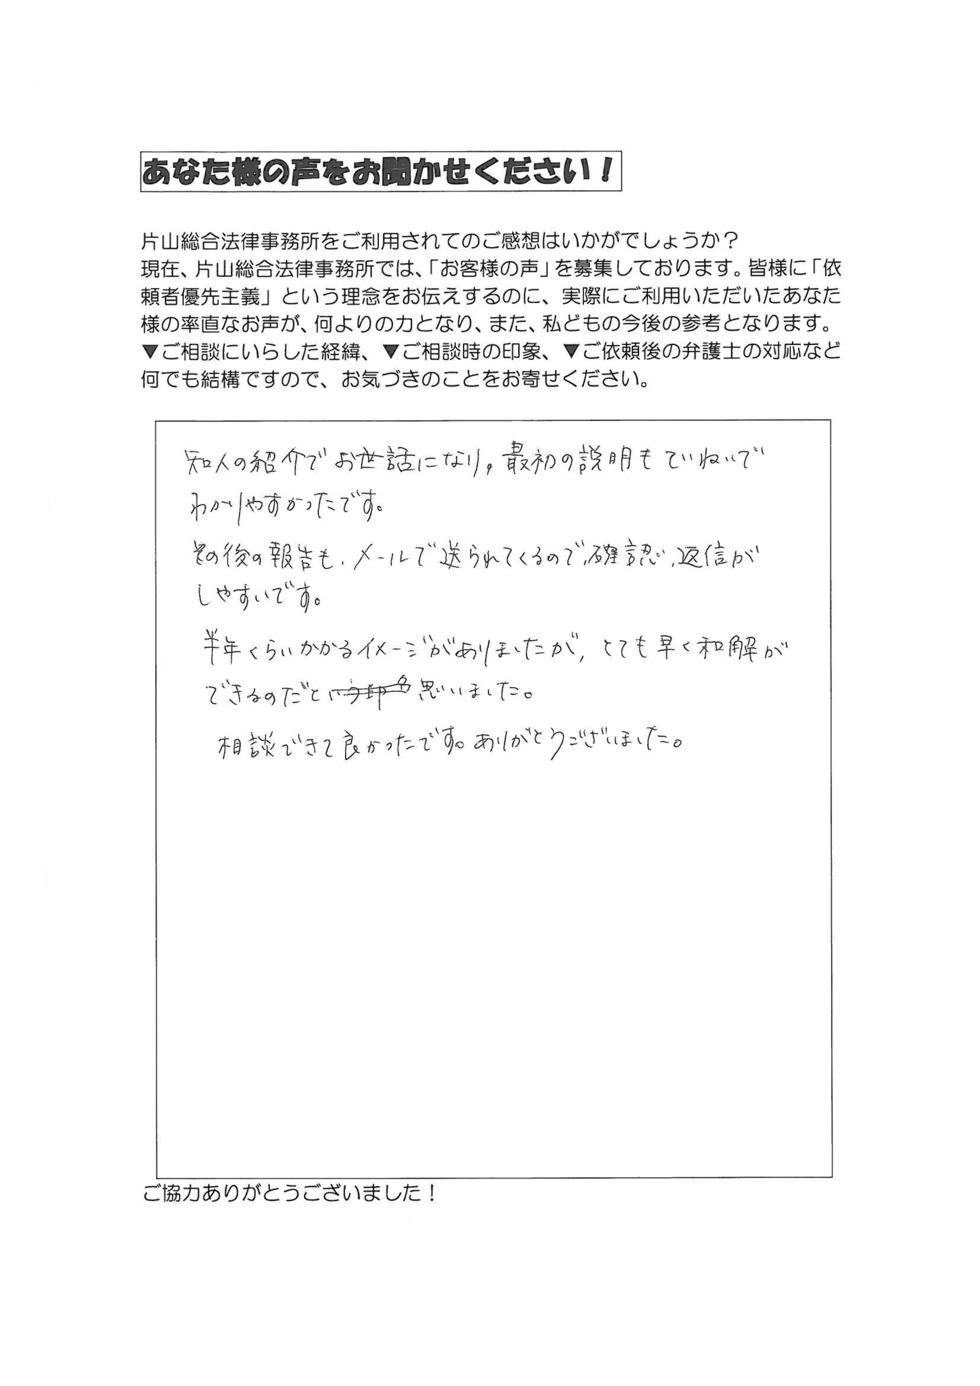 あなた様の声をお聞かせください！
片山総合法律事務所をご利用されてのご感想はいかがでしょうか？
現在、片山総合法律事務所では、「お客様の声」を募集しております。皆様に「依
頼者優先主義」という理念をお伝えするのに、実際にご利用いただいたあなた
様の率直なお声が、何よりの力となり、また、私どもの今後の参考となります。
▼ご相談にいらした経緯、▼ご相談時の印象、▼ご依頼後の弁護士の対応など
何でも結構ですので、お気づきのことをお寄せください。
知人の紹介でお世話になり、最初の説明もていねいで
わかりやすかったです。
その後の報告も、メールで送られてくるので、確認、返信が
しやすいです。
半年くらいかかるイメージがありましたが、とても早く和解が
できるのだと思いました。
相談できて良かったです。ありがとうございました。
ご協力ありがとうございました！